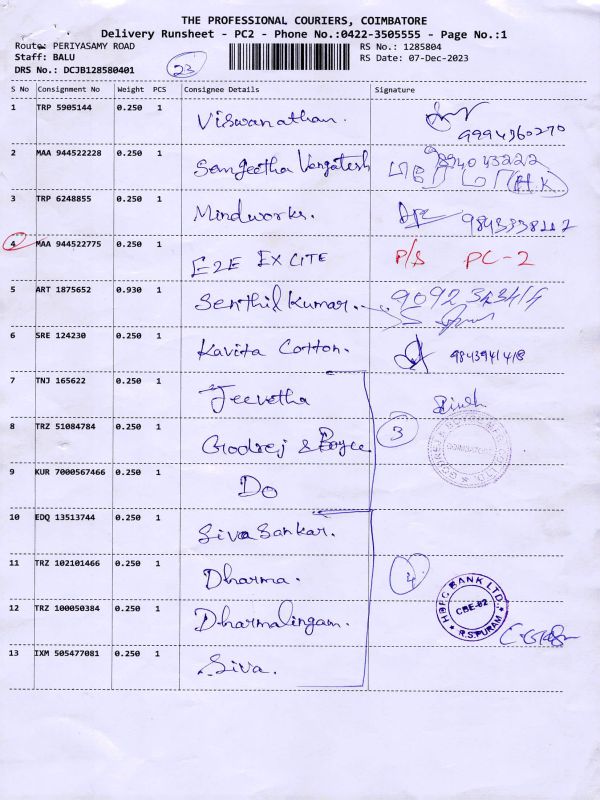 THE PROFESSIONAL COURIERS, COIMBATORE
Delivery Runsheet - PC2 - Phone No.:0422-3505555 - Page No.:1
Route: PERIYASAMY ROAD
Staff: BALU
DRS No.: DCJB128580401
23
RS No.: 1285804
RS Date: 07-Dec-2023
S No Consignment No Weight PCS Consignee Details Signature
1 TRP 5905144 0.250 1 Viswanathan.
9994960270
2 MAA 944522228 0.250 1 Sangeetha Vengatesh
9894043222
H.K.
3 TRP 6248855 0.250 1 Mindworks. 9843338112
4 MAA 944522775 0.250 1 E2E EXCITE P/S PC-2
5 ART 1875652 0.930 1 Senthil Kumar.
6 SRE 124230 0.250 1 Kavita Cotton. 9843941418
7 TNJ 165622 0.250 1 Jeevetha
8 TRZ 51084784 0.250 1 Godrej & Boyce 3
COIMBATORE
9 KUR 7000567466 0.250 1 Do
10 EDQ 13513744 0.250 1 Siva Sankar.
11 TRZ 102101466 0.250 1 Dharma. 4
12 TRZ 100050384 0.250 1 Dharmalingam.
HDFC BANK LTD.
CBE-02
R.S.PURAM
13 IXM 505477081 0.250 1 Siva.